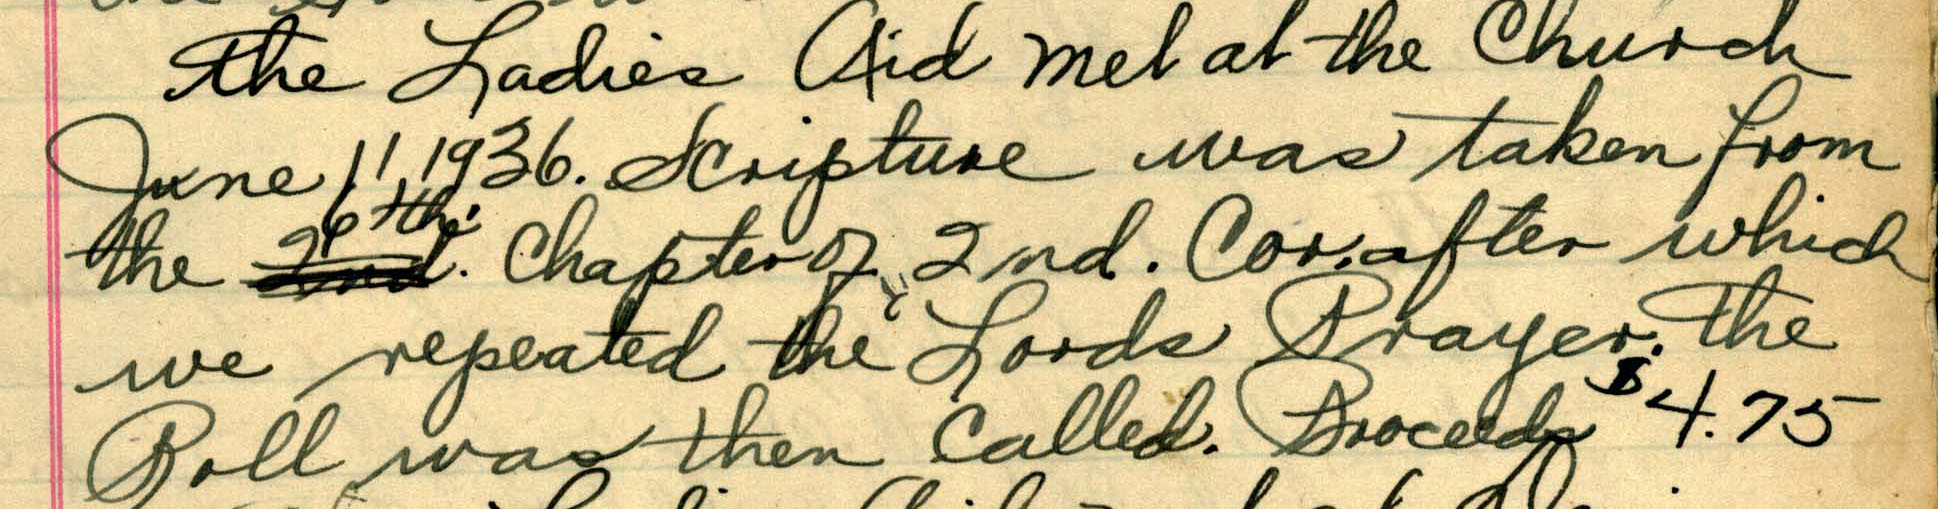 the Ladies Aid met at the Church
June 11, 1936. Scripture was taken from
the 2nd 6th. Chapter of 2nd. Cor. after which
we repeated the Lords Prayer. The
Roll was then Called. Proceeds $4.75